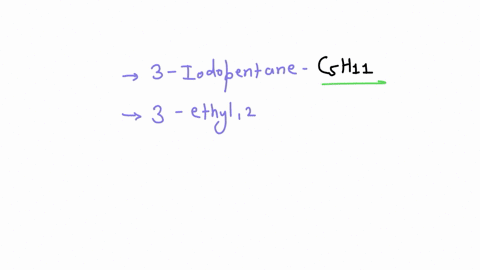 → 3-Iodopentane - C5H11
→ 3-ethyl, 2